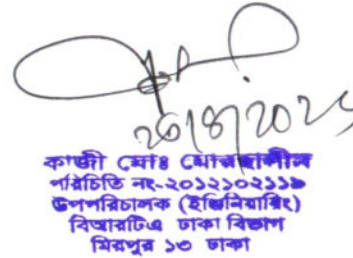 ২৫/৪/২০২৫
কাজী মোঃ মোরছালীন
পরিচিতি নং-২০১২১০২১১৯
উপপরিচালক (ইঞ্জিনিয়ারিং)
বিআরটিএ ঢাকা বিভাগ
মিরপুর ১৩ ঢাকা